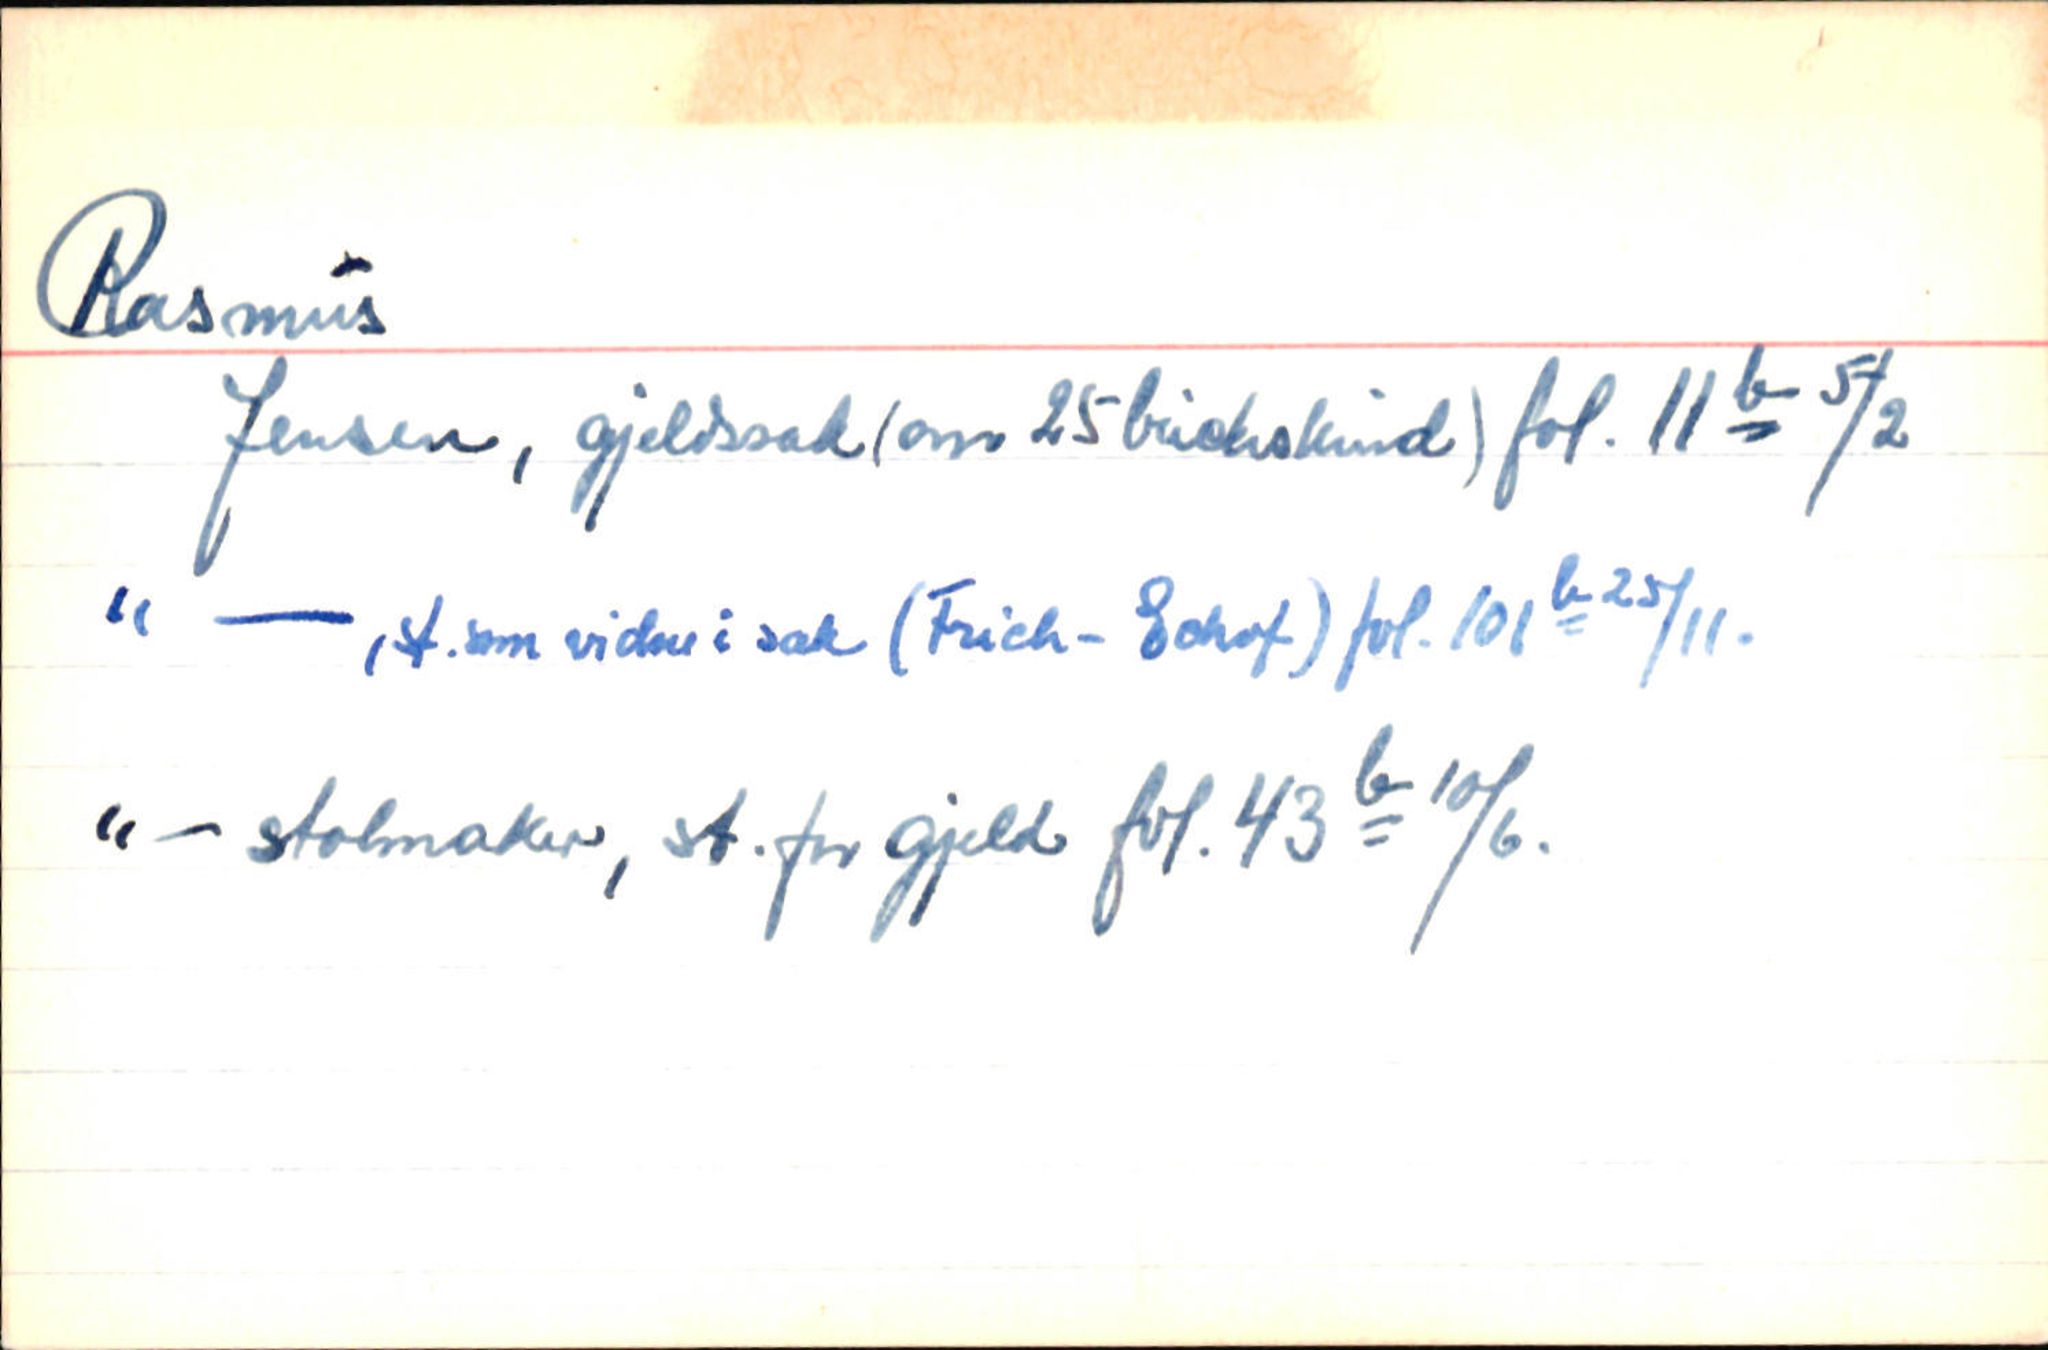 Rasmus
Jensen, gjeldssak (om 25 buchskind) fol. 11 b 5/2
" — , st. som vidne i sak (Frich - Echof) fol. 101 b 25/11.
" — stolmaker, st. for gjeld fol. 43 b 10/6.